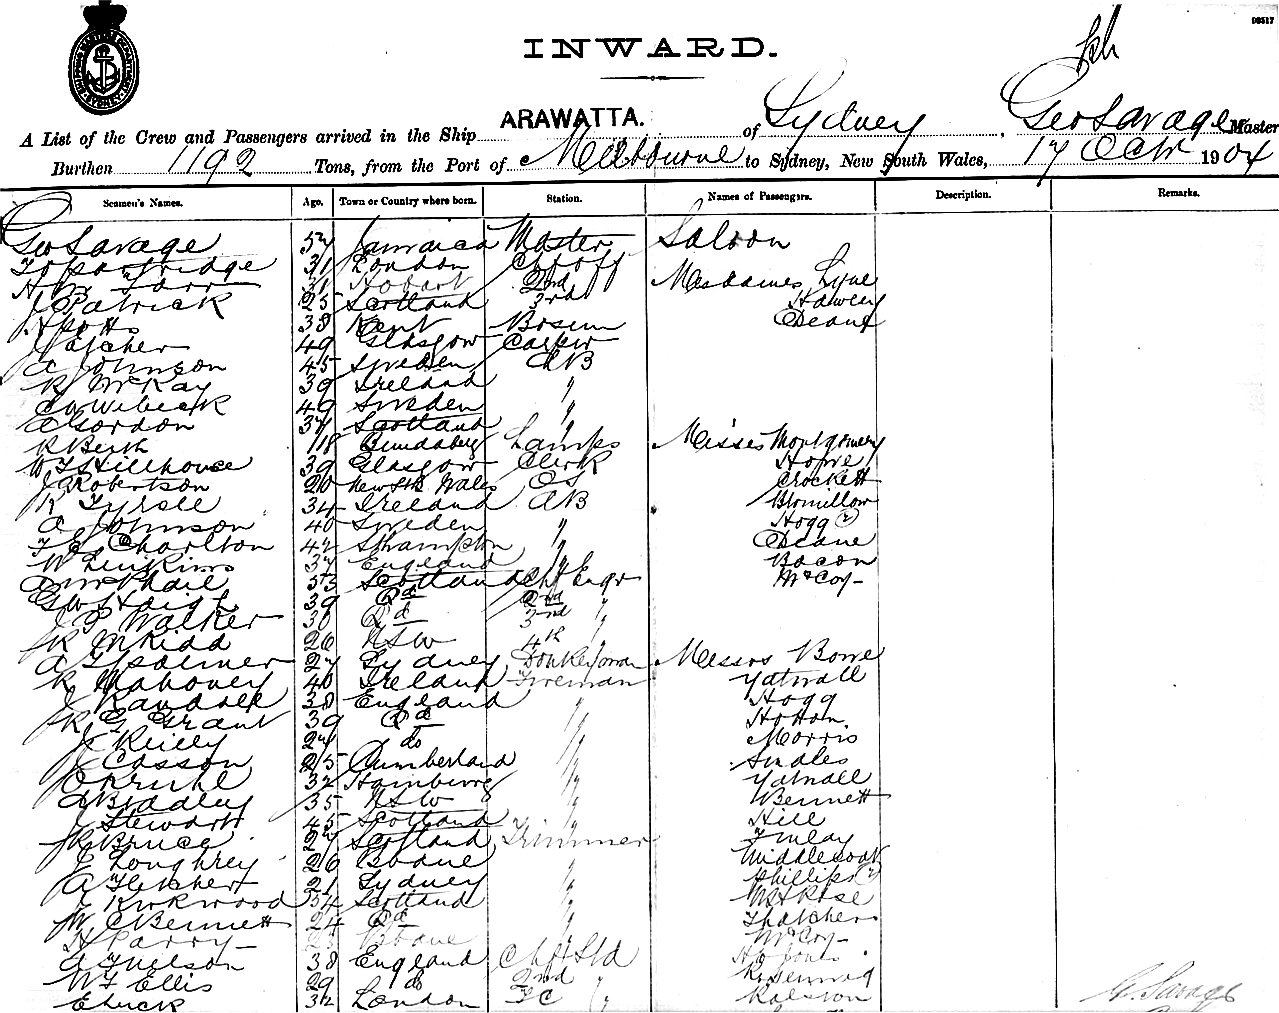 00517
INWARD.
A List of the Crew and Passengers arrived in the Ship ARAWATTA. of Sydney, Geo Savage Master
Burthen 1192 Tons, from the Port of Melbourne to Sydney, New South Wales, 17 Octr 1904
Seamen's Names. Age. Town or Country where born. Station. Names of Passengers. Description. Remarks.
Geo Savage 57 Jamaica Master Saloon
Partridge 31 London Ch Off
H Tarr 31 Hobart 2nd Mesdames Lyne
J Patrick 25 Scotland 3rd Hawley
H Potts 38 Kent Bosun Deane
J Patcher 49 Glasgow Carpr
A Johnson 45 Sweden AB
R McKay 39 Ireland "
Wibeck 49 Sweden "
A Gordon 37 Scotland "
R Beith 18 Bundaberg Lamps Misses Montgomery
W T Hillhouse 39 Glasgow Clerk Howe
J Robertson 20 New Sth Wales OS Crockett
R Tyrell 34 Ireland AB Bromillow
A Johnson 40 Sweden " Hogg (2)
T E Charlton 42 Shampton " Deane
W Jenkins 37 England " Bacon
A McPhail 53 Scotland Chf Engr McCoy
G W Haigh 39 Do 2nd "
J P Walker 30 Do 3rd "
R McKidd 26 NSW 4th "
A T Palmer 27 Sydney Donkeyman Messrs Bowe
R Mahoney 40 Ireland Fireman Yatnall
J Randell 38 England " Hogg
R G Grant 39 Do " Hotton
J Reilly 27 do " Morris
J Casson 25 Cumberland " Smales
C Kruhl 32 Hamburg " Yatnall
A Bradley 35 NSW " Bennett
J Stewart 45 Scotland " Hill
R Bruce 27 Scotland Trimmer Finlay
J Loughrey 26 Bbane " Middlecoat
A Fletcher 21 Sydney " Phillips (2)
Kirkwood 34 Scotland " Rose
W C Bennett 24 Do " Thatcher
H Parry 23 Bbane " McCoy
A T Nelson 38 England Chf Std Jones
W T Ellis 29 do 2nd "
E Luck 32 London FC " Ralston
G. Savage